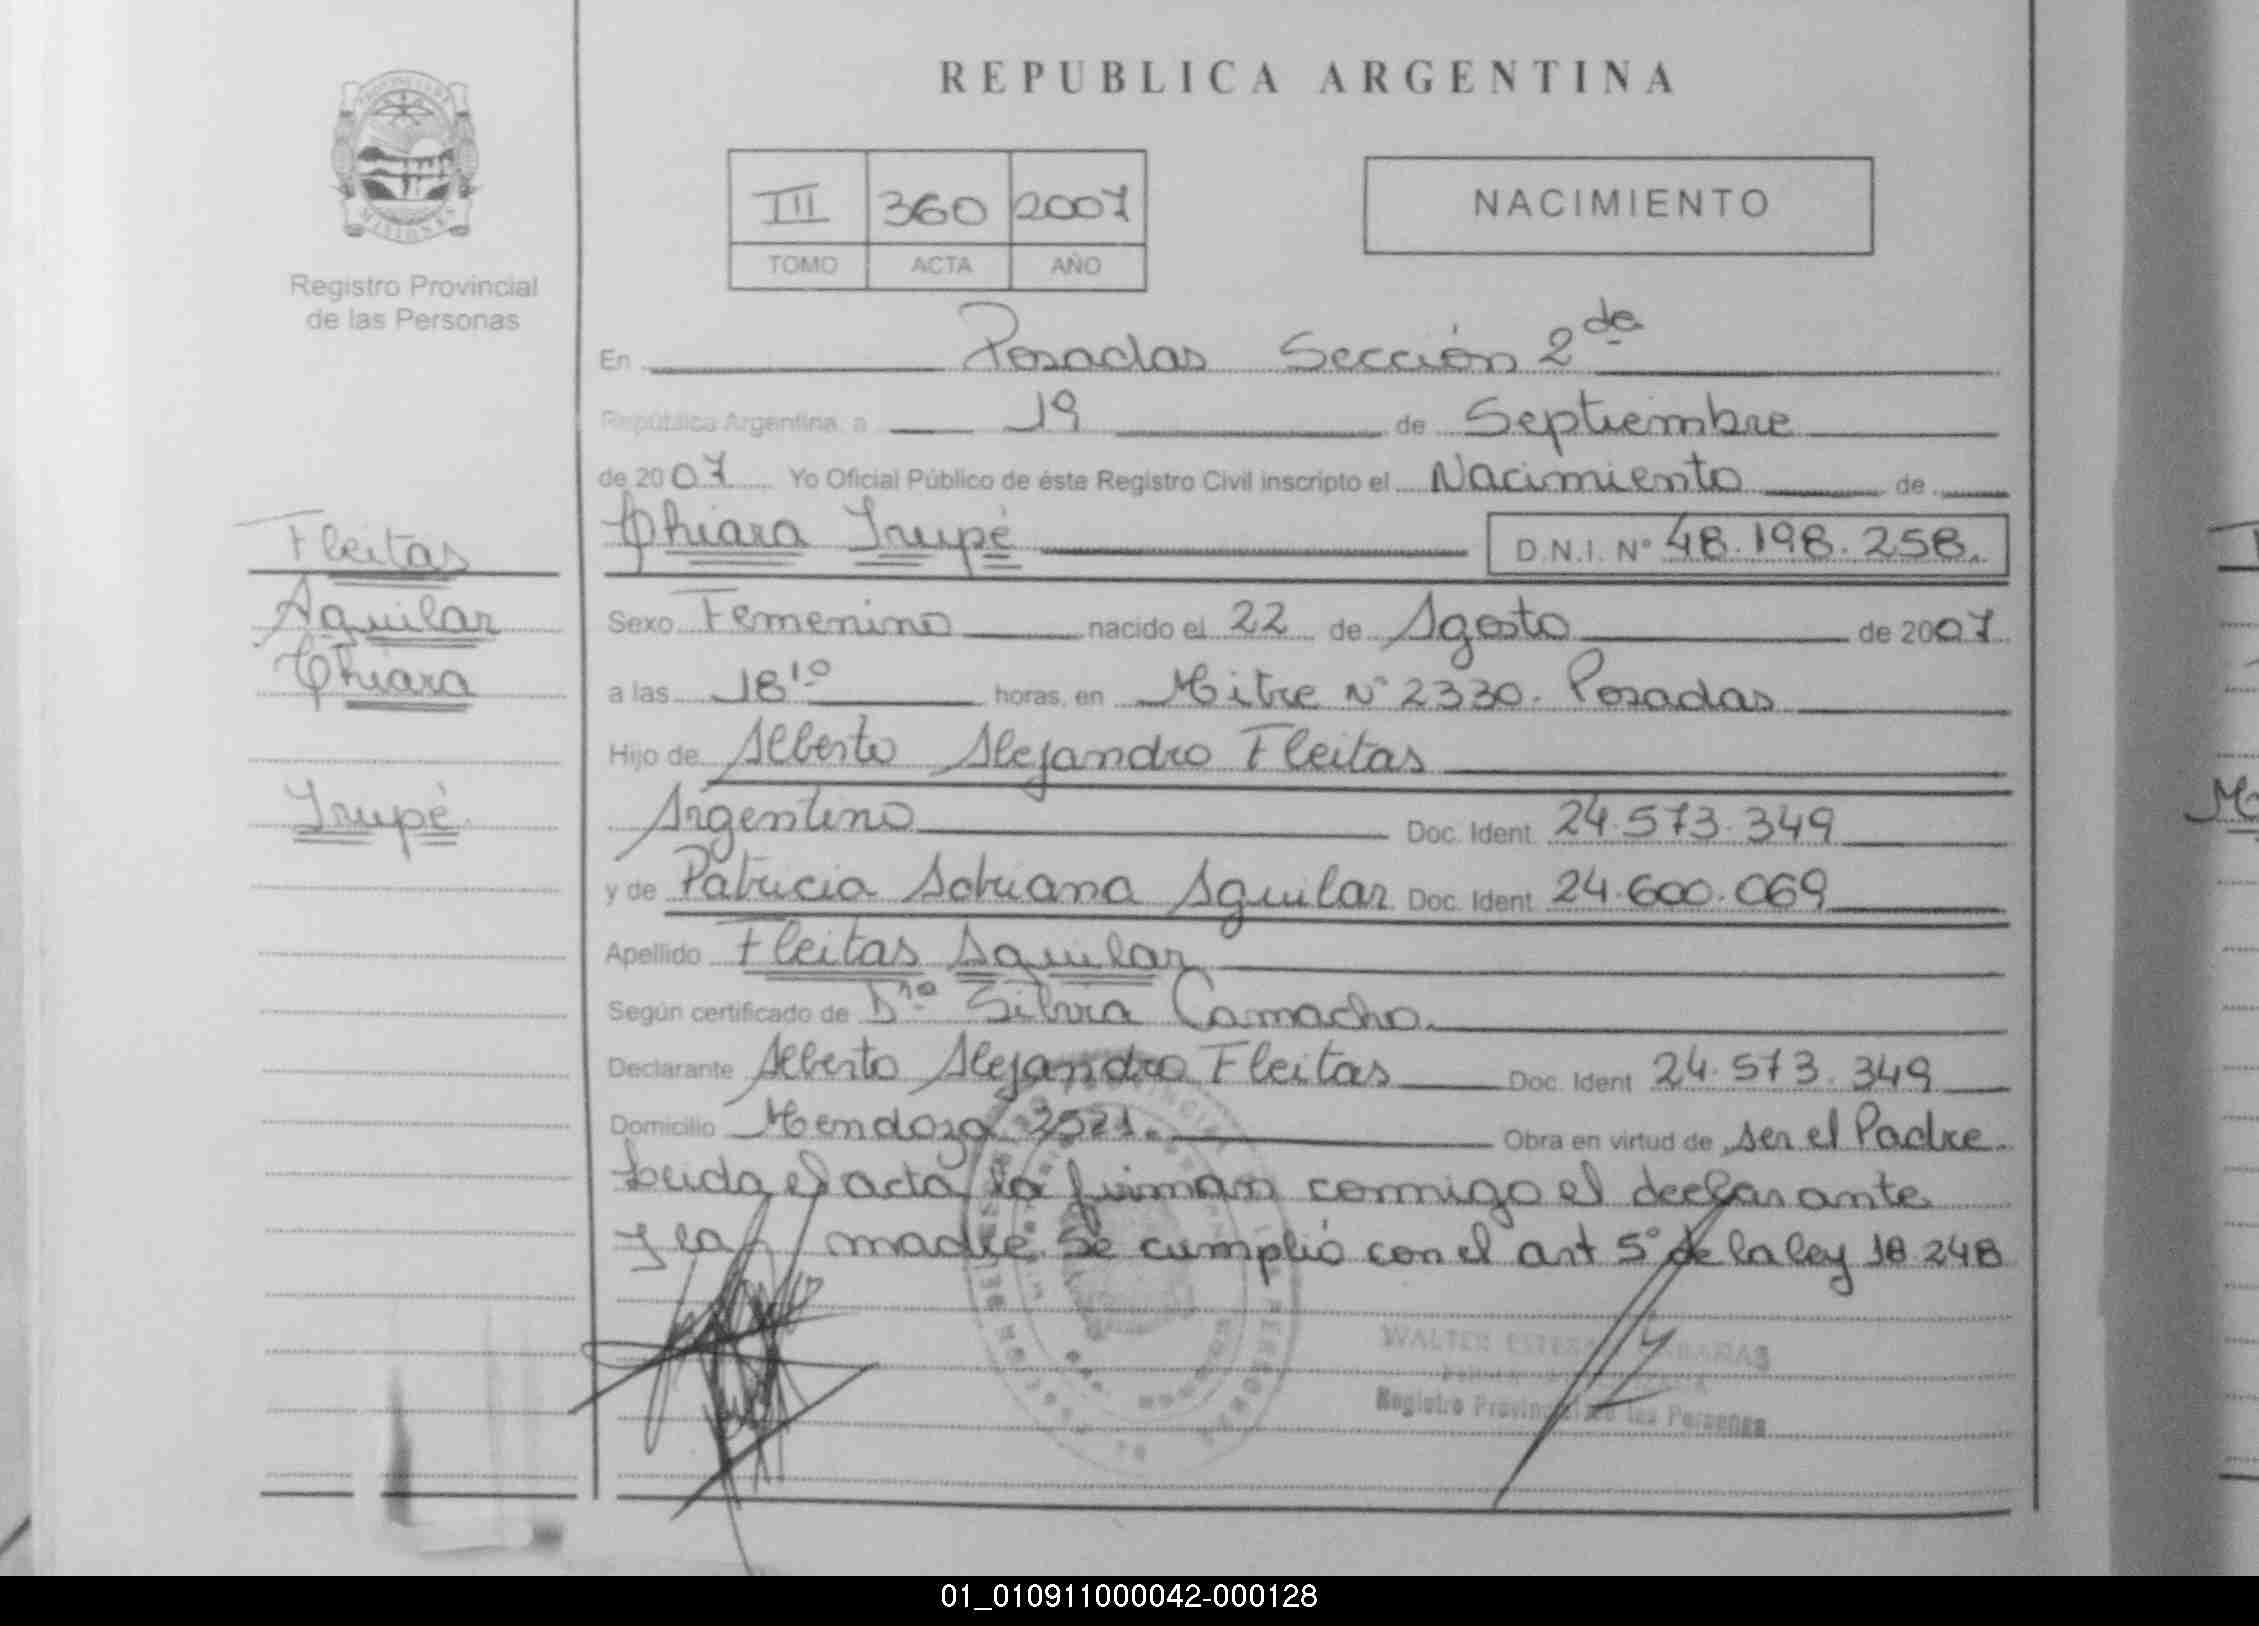 REPUBLICA ARGENTINA
III 360 2007
TOMO ACTA AÑO
NACIMIENTO
Registro Provincial
de las Personas
En Posadas Sección 2da
República Argentina, a 19 de Septiembre
de 2007 Yo Oficial Público de éste Registro Civil inscripto el Nacimiento de
Chiara Irupé D.N.I. Nº 48.198.258.
Fleitas
Aguilar
Chiara
Irupé
Sexo Femenino nacido el 22 de Agosto de 2007
a las 18 10 horas, en Mitre Nº 2330. Posadas
Hijo de Alberto Alejandro Fleitas
Argentino Doc. Ident 24.573.349
y de Patricia Adriana Aguilar Doc. Ident 24.600.069
Apellido Fleitas Aguilar
Según certificado de Dra Silvia Camacho.
Declarante Alberto Alejandro Fleitas Doc. Ident 24.573.349
Domicilio Mendoza 3521. Obra en virtud de ser el Padre.
Leida el acta la firman conmigo el declarante
y la madre. Se cumplió con el art 5º de la ley 18.248
WALTER
Registro Provincial de las Personas
01_010911000042-000128